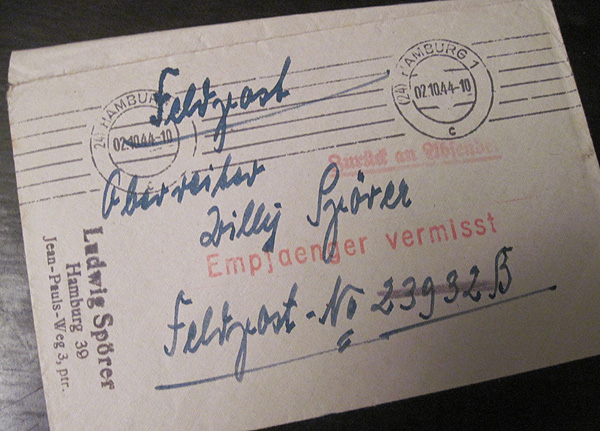 (24) HAMBURG 1
02.10.44-10
c
(24) HAMBURG 1
02.10.44-10
c
Feldpost
Zurück an Absender.
Oberreiter
Willy Spörer
Empfaenger vermisst
Feldpost-No 23932B
Ludwig Spörer
Hamburg 39
Jean-Pauls-Weg 3, ptr.